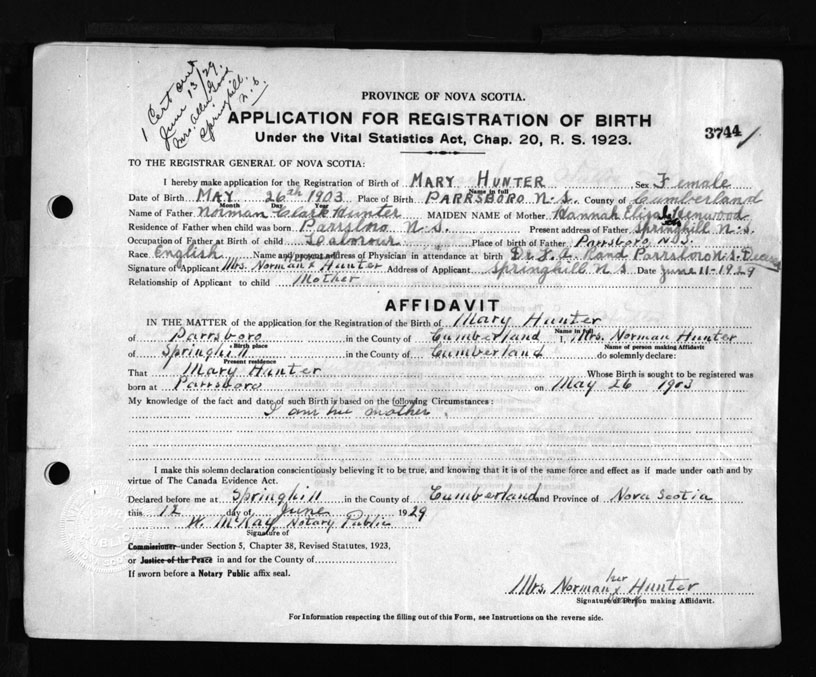 1 Cert out
June 13/29.
Mrs. Allie
Springhill.
N.S.
PROVINCE OF NOVA SCOTIA.
APPLICATION FOR REGISTRATION OF BIRTH
Under the Vital Statistics Act, Chap. 20, R. S. 1923.
3744
TO THE REGISTRAR GENERAL OF NOVA SCOTIA:
I hereby make application for the Registration of Birth of MARY HUNTER Sex Female
Name in full
Date of Birth MAY 26th 1903 Place of Birth PARRSBORO N.S. County of Cumberland
Month Day Year
Name of Father Norman Clark Hunter MAIDEN NAME of Mother Hannah Eliza
Residence of Father when child was born Parrsboro N.S. Present address of Father Springhill N.S.
Occupation of Father at Birth of child Place of birth of Father Parrsboro N.S.
Race English Name and present address of Physician in attendance at birth Dr. Rand Parrsboro N.S.
Signature of Applicant Mrs. Norman x Hunter Address of Applicant Springhill N S Date June 11-1929
Relationship of Applicant to child Mother
AFFIDAVIT
IN THE MATTER of the application for the Registration of the Birth of Mary Hunter
Name in full
of Parrsboro in the County of Cumberland I, Mrs. Norman Hunter
Birth place Name of person making Affidavit
of Springhill in the County of Cumberland do solemnly declare:
Present residence
That Mary Hunter Whose Birth is sought to be registered was
born at Parrsboro on May 26 1903
My knowledge of the fact and date of such Birth is based on the following Circumstances:
I am her mother.
I make this solemn declaration conscientiously believing it to be true, and knowing that it is of the same force and effect as if made under oath and by
virtue of The Canada Evidence Act.
Declared before me at Springhill in the County of Cumberland and Province of Nova Scotia
this 12 day of June 1929
W. McKay Notary Public
Signature of
Commissioner under Section 5, Chapter 38, Revised Statutes, 1923,
or Justice of the Peace in and for the County of
If sworn before a Notary Public affix seal.
her
Mrs. Norman x Hunter
Signature of Person making Affidavit.
For Information respecting the filling out of this Form, see Instructions on the reverse side.